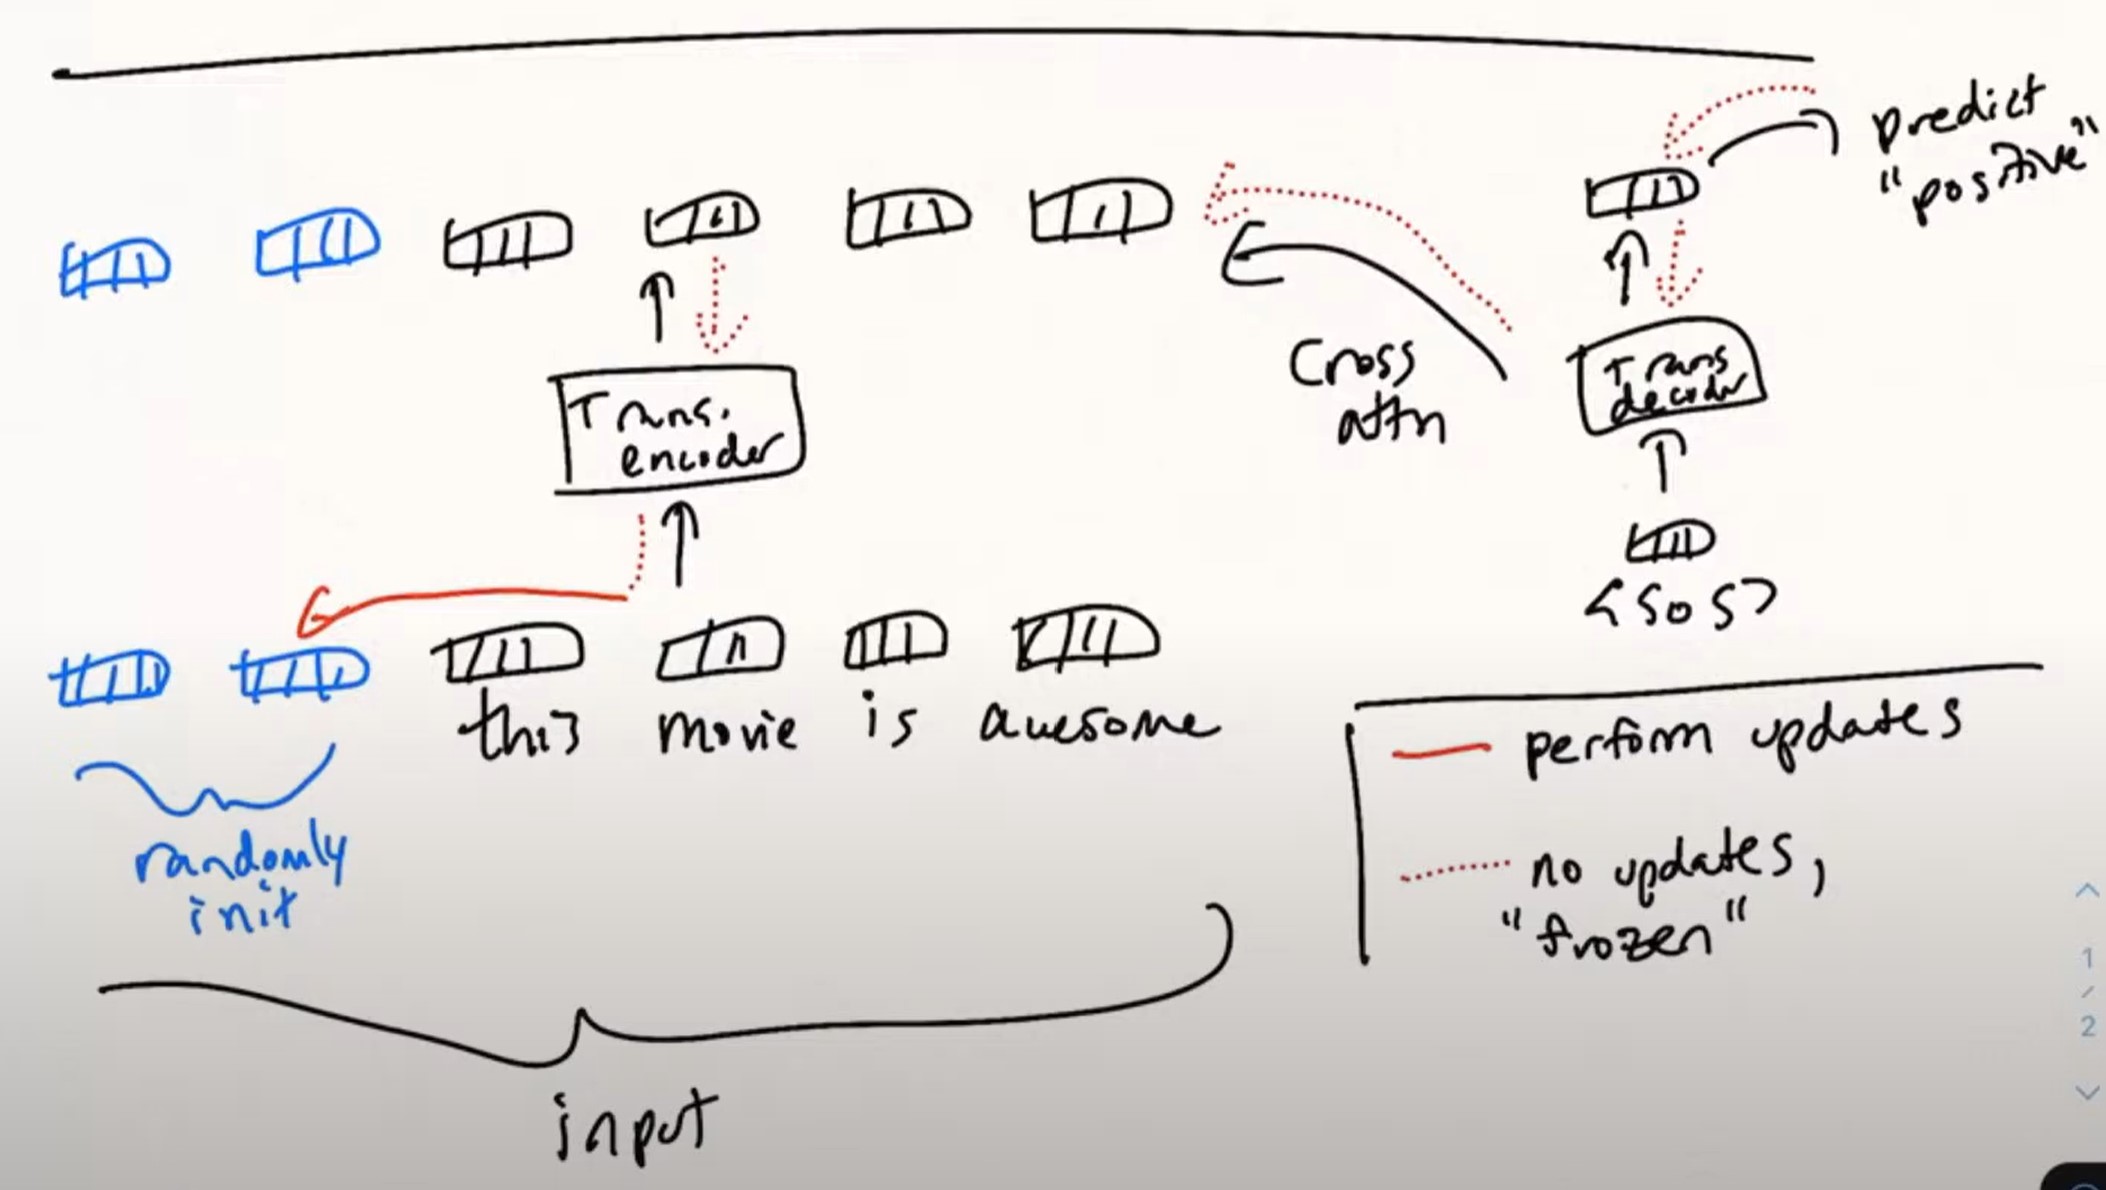 predict
"positive"
Cross
attn
Trans
decoder
Trans.
encoder
<SOS>
this movie is awesome
randomly
init
input
perform updates
no updates,
"frozen"
1
/
2